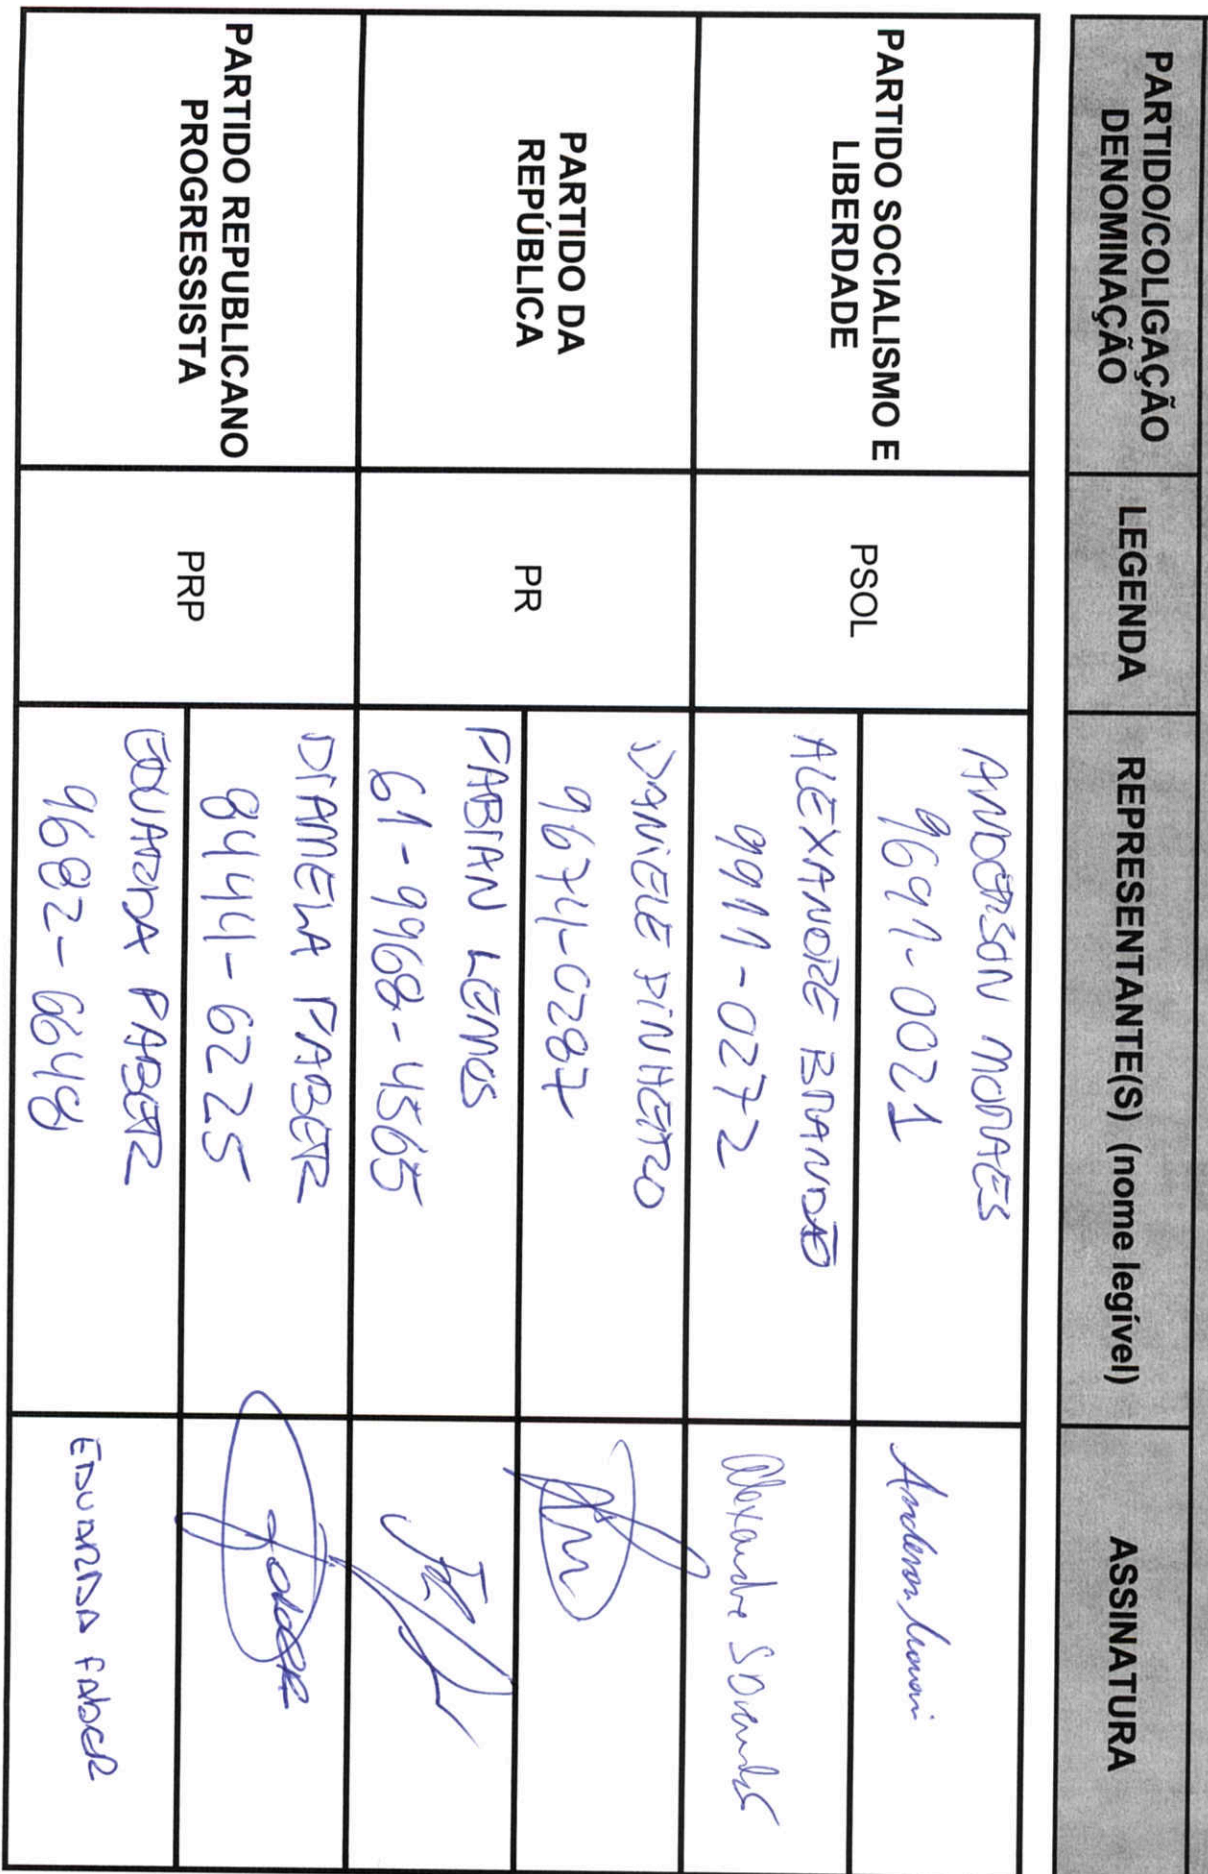 PARTIDO/COLIGAÇÃO
DENOMINAÇÃO
LEGENDA
REPRESENTANTE(S) (nome legível)
ASSINATURA
PARTIDO SOCIALISMO E
LIBERDADE
PSOL
ANDERSON MORAES
9691-0021
Anderson
ALEXANDRE BRANDÃO
9911-0272
Alexandre
PARTIDO DA
REPÚBLICA
PR
DANIELE PINHEIRO
9674-0287
FABIAN LEMOS
61-9968-4565
PARTIDO REPUBLICANO
PROGRESSISTA
PRP
DIAMELA FABER
8444-6225
FABER
EDUARDA FABER
9682-6648
EDUARDA FABER